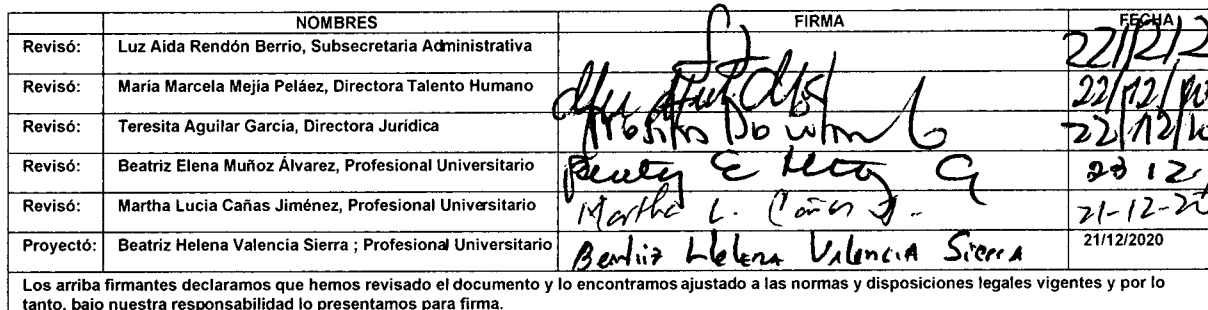 NOMBRES FIRMA FECHA
Revisó: Luz Aida Rendón Berrio, Subsecretaria Administrativa 22/12/2
Revisó: María Marcela Mejía Peláez, Directora Talento Humano 22/12/
Revisó: Teresita Aguilar García, Directora Jurídica 22/12/
Revisó: Beatriz Elena Muñoz Álvarez, Profesional Universitario 12
Revisó: Martha Lucia Cañas Jiménez, Profesional Universitario Martha L. Cañas J. 21-12-20
Proyectó: Beatriz Helena Valencia Sierra ; Profesional Universitario Beatriz Helena Valencia Sierra 21/12/2020
Los arriba firmantes declaramos que hemos revisado el documento y lo encontramos ajustado a las normas y disposiciones legales vigentes y por lo
tanto, bajo nuestra responsabilidad lo presentamos para firma.